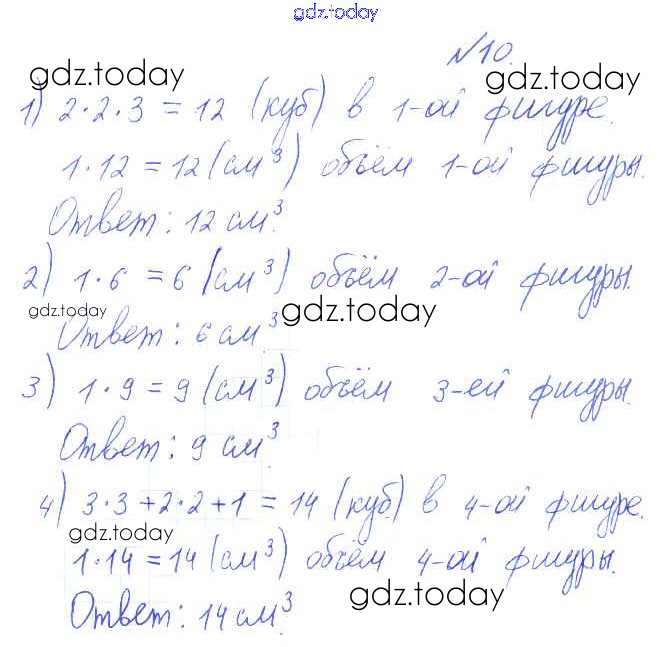 gdz.today
№10.
gdz.today gdz.today
1) 2·2·3 = 12 (куб) в 1-ой фигуре.
1·12 = 12 (см³) объём 1-ой фигуры.
Ответ: 12 см³.
2) 1·6 = 6 (см³) объём 2-ой фигуры.
gdz.today gdz.today
Ответ: 6 см³
3) 1·9 = 9 (см³) объём 3-ей фигуры.
Ответ: 9 см³.
4) 3·3+2·2+1 = 14 (куб.) в 4-ой фигуре.
gdz.today
1·14 = 14 (см³) объём 4-ой фигуры.
gdz.today
Ответ: 14 см³.